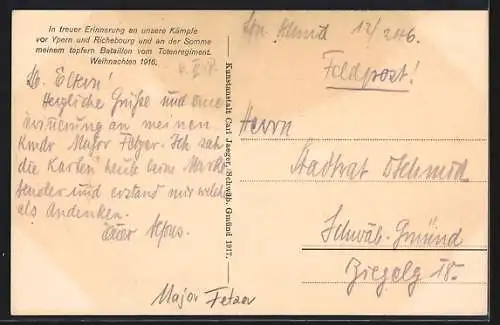 In treuer Erinnerung an unsere Kämpfe
vor Ypern und Richebourg und an der Somme
meinem tapfern Bataillon vom Totenregiment.
Weihnachten 1916.
Lb. Eltern!
Herzliche Grüße und eine
Erinnerung an meinen
Kmdr Major Fetzer. Ich sah
die Karten heute beim Marke-
tender und erstand mir welche
als Andenken.
Euer Alfons.
Kunstanstalt Carl Jaeger, Schwäb. Gmünd 1917.
12/246
Feldpost!
Herrn
Stadtrat
Schwäb.-Gmünd
18.
Major Fetzer